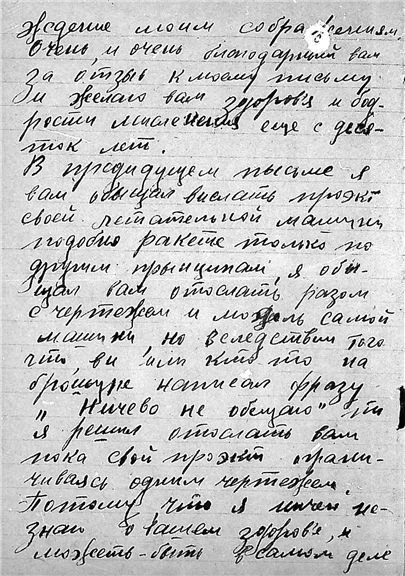 ждение моим сображениям
Очень, и очень благодарный вам
за отзыв к моему письму
и желаю вам здоровя и бод-
рости мишления еще с деся-
ток лет.
В предидущем письме я
вам обещал вислать проэкт
своей летательной машини
подобно ракете только по
другим прынципам, я обы-
щал вам отослать разом
с чертежем и модэль самой
машини, но вследствии того
что ви или кто то на
брошуре написал фразу
„Ничево не обещаю" то
я решил отослать вам
пока свой проэкт ограни-
чиваясь одним чертежем.
Потому, что я ничего не-
знаю о вашем здоровє, и
можеть-быть в самом деле